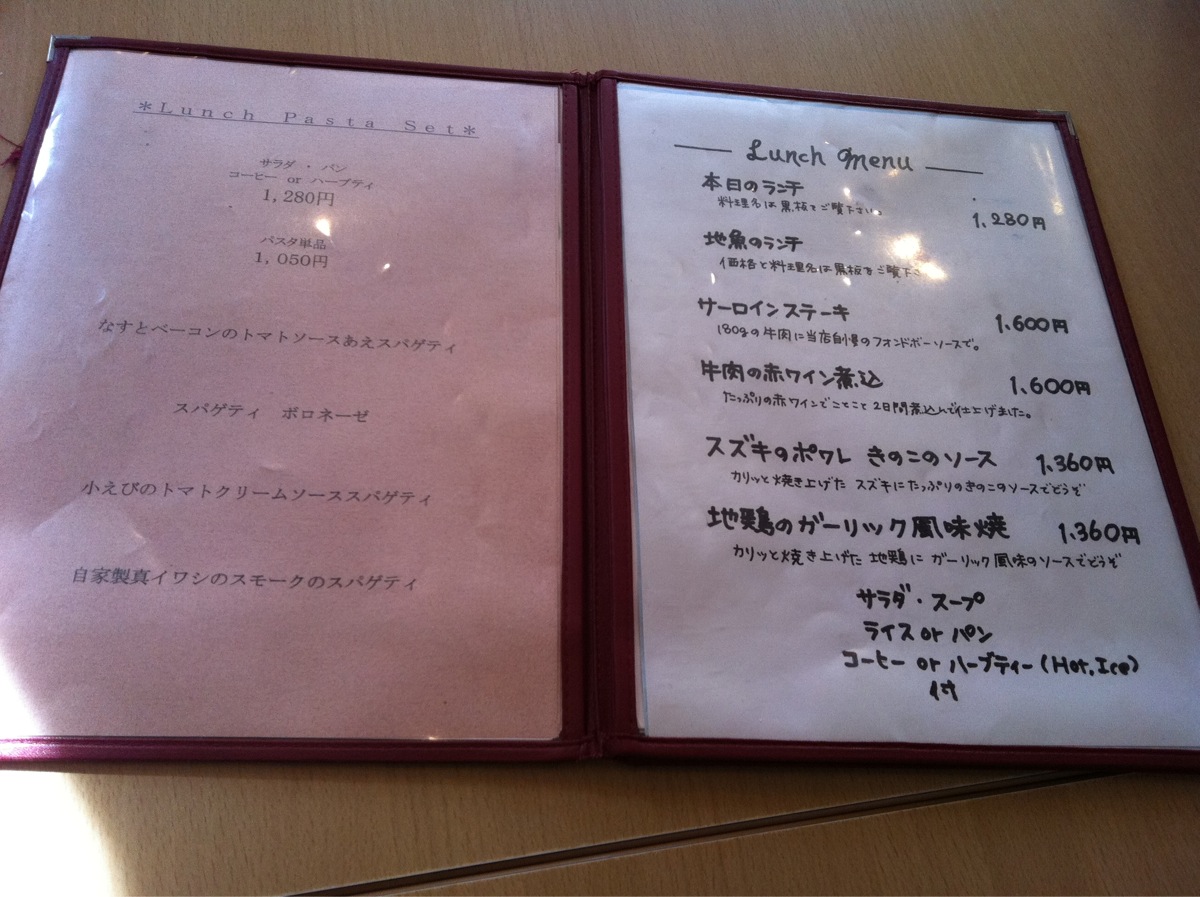 *Lunch Pasta Set*
サラダ ・ パン
コーヒー or ハーブティ
1,280円
パスタ単品
1,050円
なすとベーコンのトマトソースあえスパゲティ
スパゲティ ボロネーゼ
小えびのトマトクリームソーススパゲティ
自家製真イワシのスモークのスパゲティ
Lunch Menu
本日のランチ
料理名は黒板をご覧下さい。
1,280円
地魚のランチ
価格と料理名は黒板をご覧下さ
サーロインステーキ 1,600円
180gの牛肉に当店自慢のフォンドボーソースで。
牛肉の赤ワイン煮込 1,600円
たっぷりの赤ワインでことこと2日間煮込んで仕上げました。
スズキのポワレ きのこのソース 1,360円
カリッと焼き上げた スズキにたっぷりのきのこのソースでどうぞ
地鶏のガーリック風味焼 1,360円
カリッと焼き上げた 地鶏に ガーリック風味のソースでどうぞ
サラダ・スープ
ライス or パン
コーヒー or ハーブティー(Hot,Ice)
付